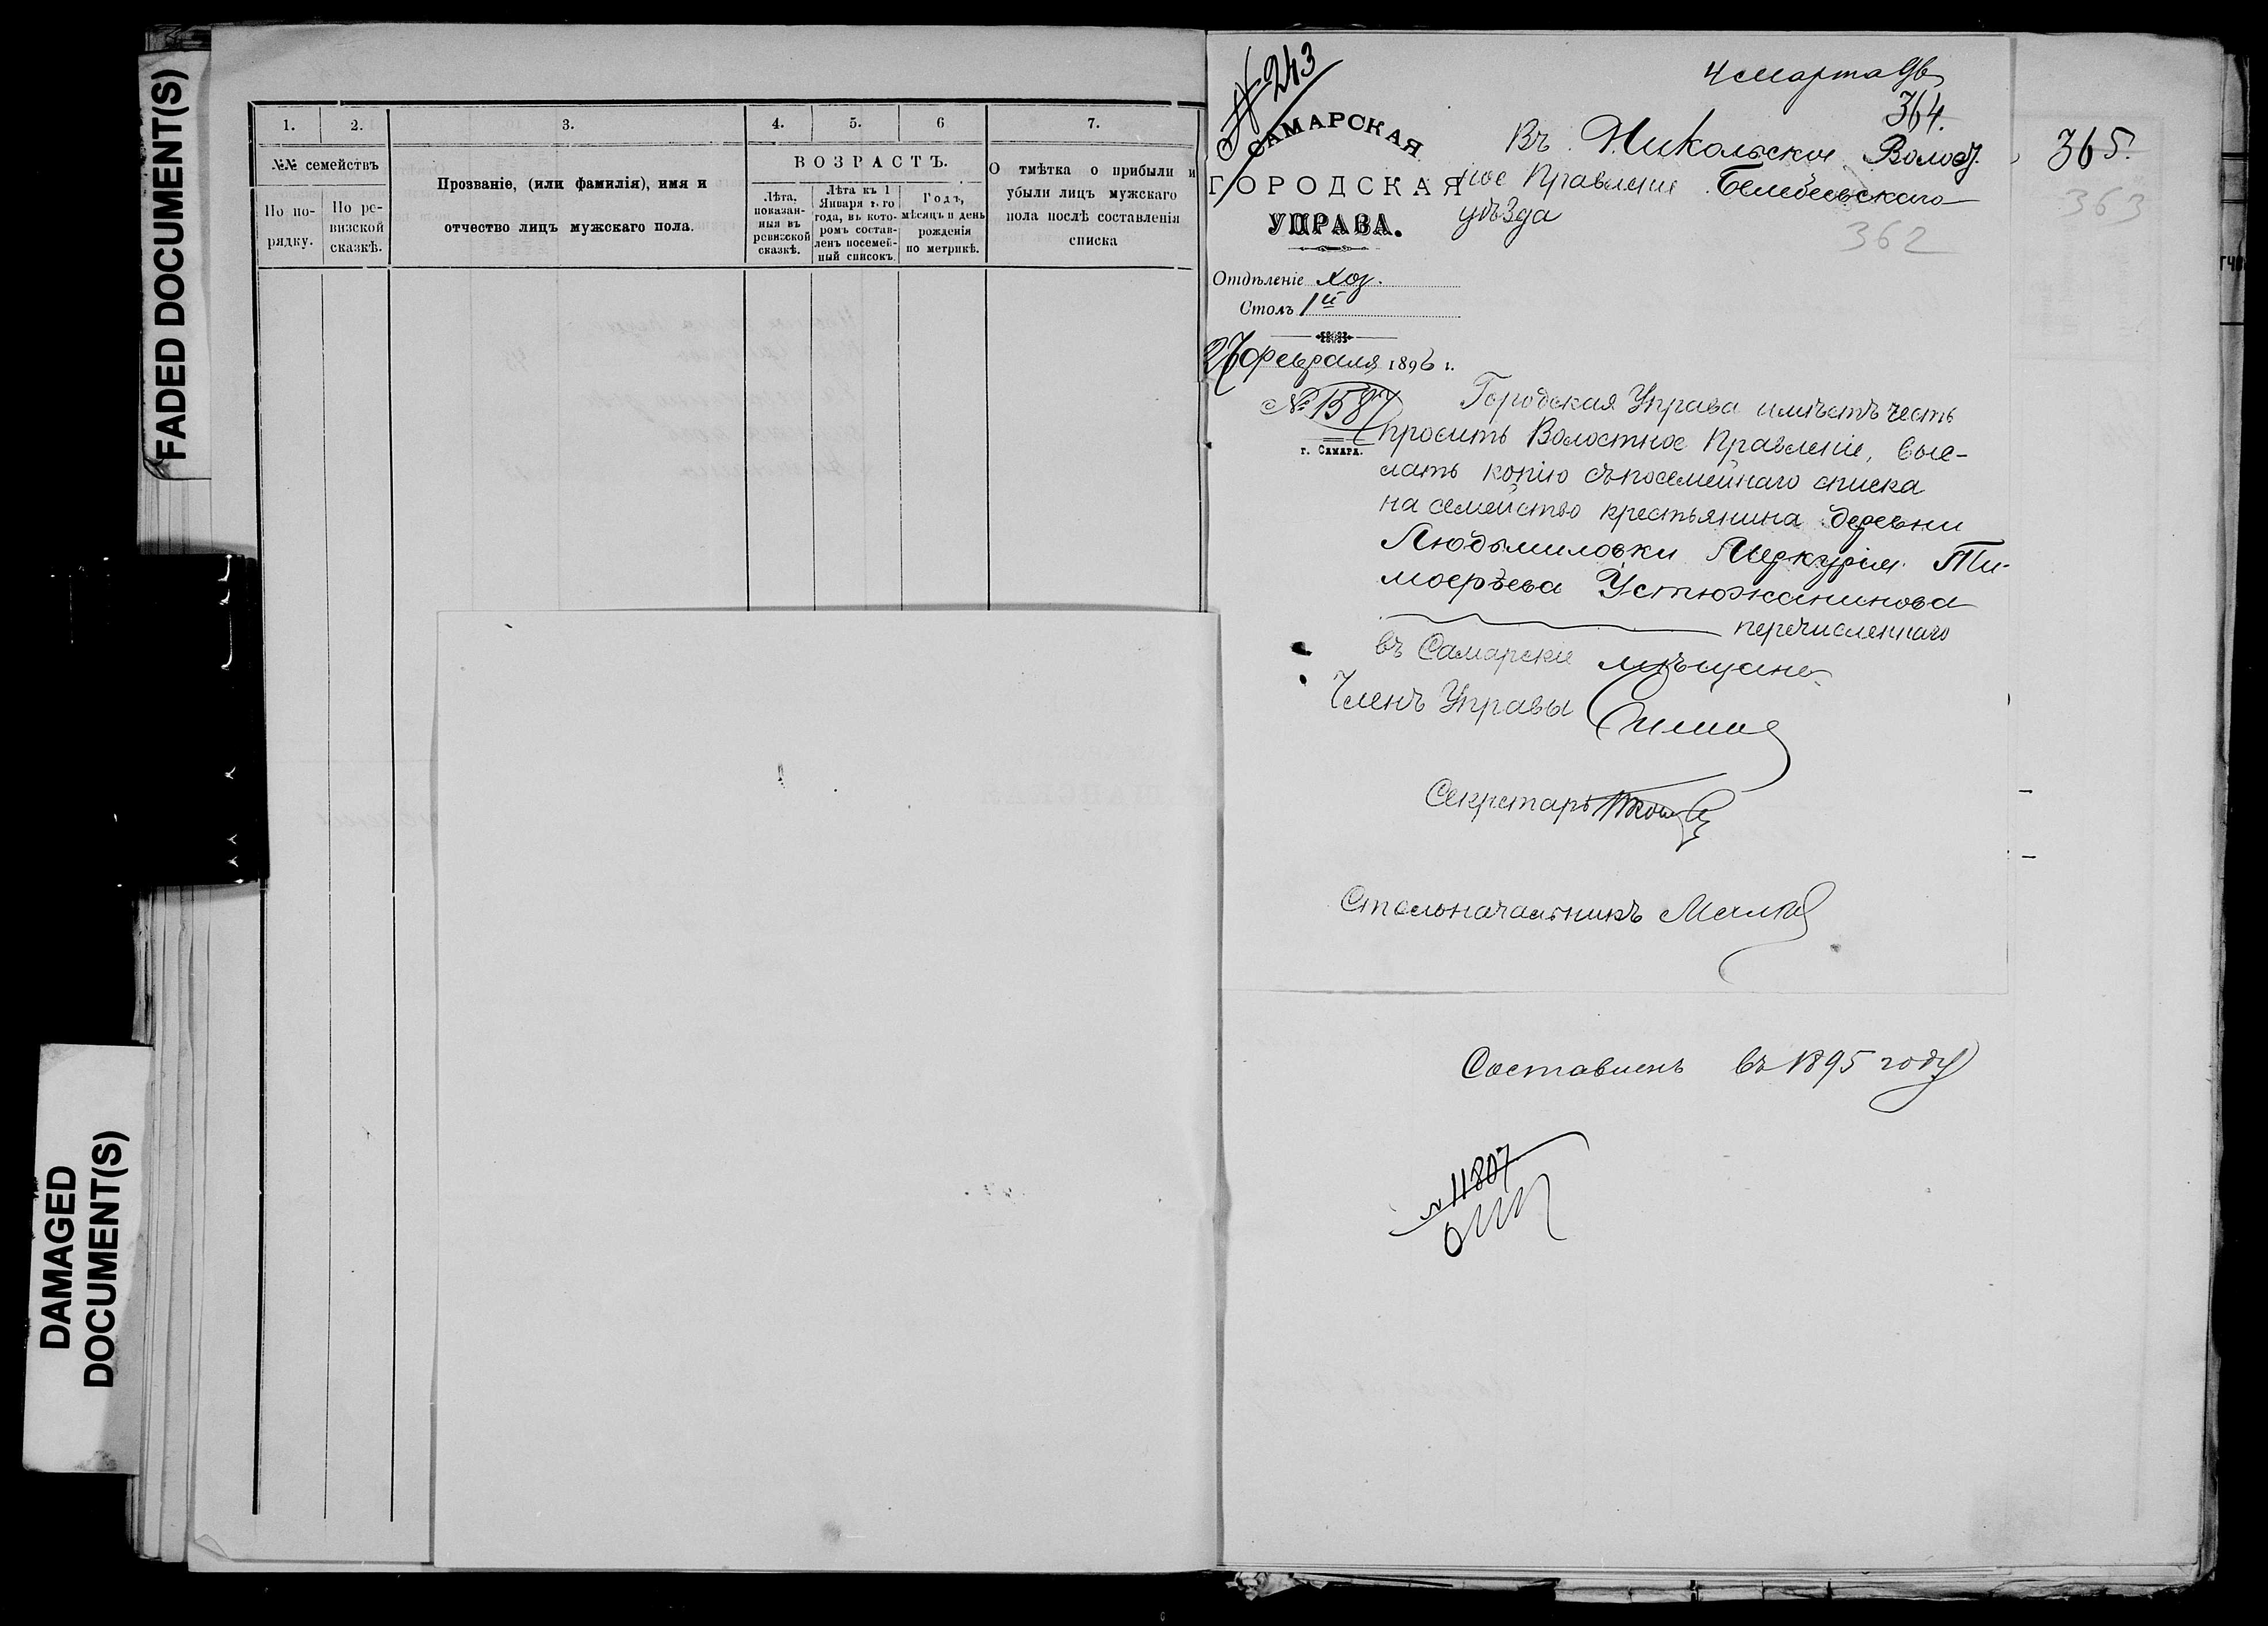 FADED DOCUMENT(S)
DAMAGED
DOCUMENT(S)
1. 2. 3. 4. 5. 6 7.
№№ семействъ
По по-
рядку.
По ре-
визской
сказкѣ.
Прозваніе, (или фамилія), имя и
отчество лицъ мужскаго пола.
ВОЗРАСТЪ.
Лѣта,
показан-
ныя въ
ревизской
сказкѣ.
Лѣта къ 1
Января т. го
года, въ кото-
ромъ состав-
ленъ посемей-
ный списокъ.
Годъ,
мѣсяцъ и день
рожденія
по метрикѣ.
О тмѣтка о прибыли и
убыли лицъ мужскаго
пола послѣ составленія
списка
№ 243
4 марта 96
364.
365.
363
362
САМАРСКАЯ
ГОРОДСКАЯ
УПРАВА.
Въ Никольское Волост-
ное Правленіе Белебеевскаго
уѣзда
Отдѣленіе Хоз.
Столъ 1й
27 февраля 1896 г.
№ 1587
г. Самара.
Городская Управа имѣетъ честь
просить Волостное Правленіе, выс-
лать копію съ посемейнаго списка
на семейство крестьянина деревни
Людьмиловки Меркурія Ти-
моѳѣева Устюжанинова
перечисленнаго
въ Самарскіе мѣщане.
Членъ Управы
Секретарь
Столоначальникъ
Составленъ въ 1895 году
№ 11807